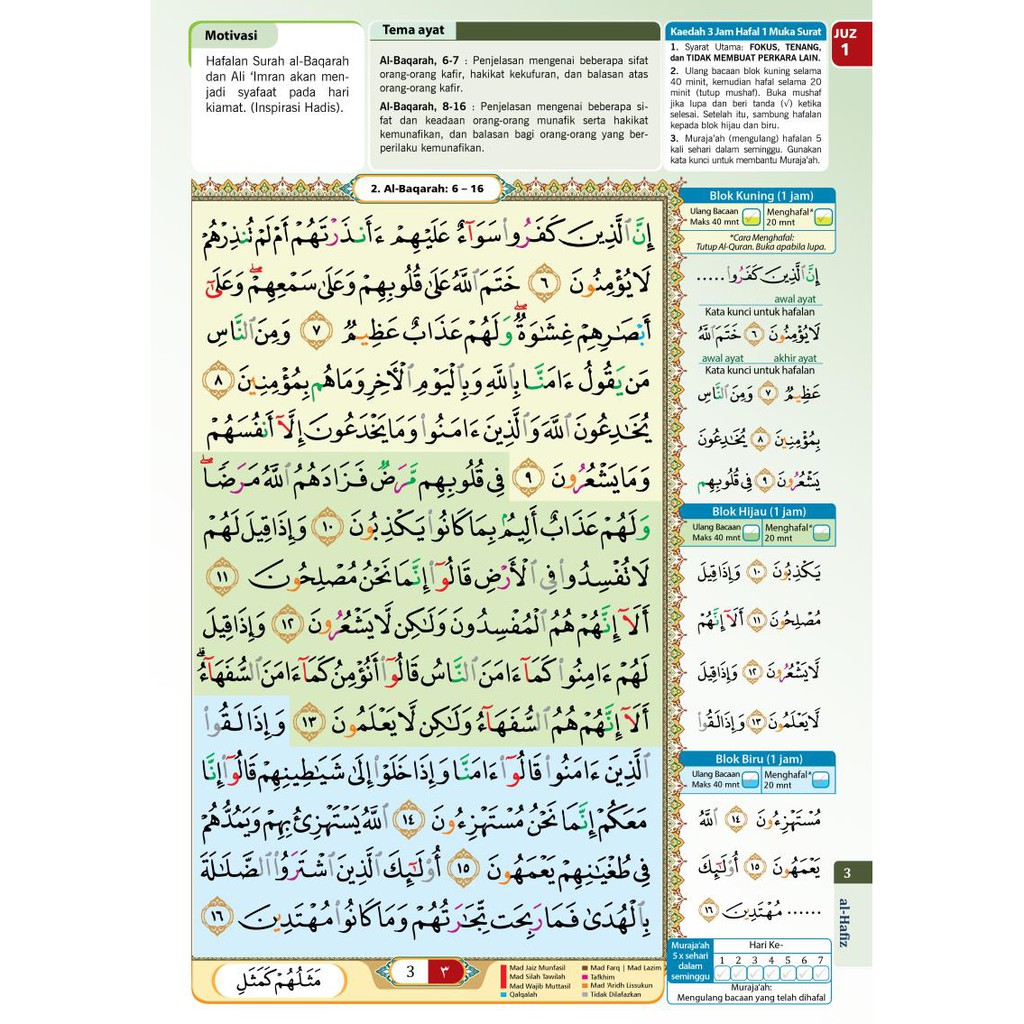 Motivasi
Hafalan Surah al-Baqarah
dan Ali 'Imran akan men-
jadi syafaat pada hari
kiamat. (Inspirasi Hadis).
Tema ayat
Al-Baqarah, 6-7 : Penjelasan mengenai beberapa sifat
orang-orang kafir, hakikat kekufuran, dan balasan atas
orang-orang kafir.
Al-Baqarah, 8-16 : Penjelasan mengenai beberapa si-
fat dan keadaan orang-orang munafik serta hakikat
kemunafikan, dan balasan bagi orang-orang yang ber-
perilaku kemunafikan.
Kaedah 3 Jam Hafal 1 Muka Surat
1. Syarat Utama: FOKUS, TENANG,
dan TIDAK MEMBUAT PERKARA LAIN.
2. Ulang bacaan blok kuning selama
40 minit, kemudian hafal selama 20
minit (tutup mushaf). Buka mushaf
jika lupa dan beri tanda (√) ketika
selesai. Setelah itu, sambung hafalan
kepada blok hijau dan biru.
3. Muraja'ah (mengulang) hafalan 5
kali sehari dalam seminggu. Gunakan
kata kunci untuk membantu Muraja'ah.
JUZ
1
2. Al-Baqarah: 6 – 16
إِنَّ ٱلَّذِينَ كَفَرُوا۟ سَوَآءٌ عَلَيْهِمْ ءَأَنذَرْتَهُمْ أَمْ لَمْ تُنذِرْهُمْ
لَا يُؤْمِنُونَ ٦ خَتَمَ ٱللَّهُ عَلَىٰ قُلُوبِهِمْ وَعَلَىٰ سَمْعِهِمْ ۖ وَعَلَىٰٓ
أَبْصَـٰرِهِمْ غِشَـٰوَةٌ ۖ وَلَهُمْ عَذَابٌ عَظِيمٌ ٧ وَمِنَ ٱلنَّاسِ
مَن يَقُولُ ءَامَنَّا بِٱللَّهِ وَبِٱلْيَوْمِ ٱلْـَٔاخِرِ وَمَا هُم بِمُؤْمِنِينَ ٨
يُخَـٰدِعُونَ ٱللَّهَ وَٱلَّذِينَ ءَامَنُوا۟ وَمَا يَخْدَعُونَ إِلَّآ أَنفُسَهُمْ
وَمَا يَشْعُرُونَ ٩ فِى قُلُوبِهِم مَّرَضٌ فَزَادَهُمُ ٱللَّهُ مَرَضًا ۖ
وَلَهُمْ عَذَابٌ أَلِيمٌۢ بِمَا كَانُوا۟ يَكْذِبُونَ ١٠ وَإِذَا قِيلَ لَهُمْ
لَا تُفْسِدُوا۟ فِى ٱلْأَرْضِ قَالُوٓا۟ إِنَّمَا نَحْنُ مُصْلِحُونَ ١١
أَلَآ إِنَّهُمْ هُمُ ٱلْمُفْسِدُونَ وَلَـٰكِن لَّا يَشْعُرُونَ ١٢ وَإِذَا قِيلَ
لَهُمْ ءَامِنُوا۟ كَمَآ ءَامَنَ ٱلنَّاسُ قَالُوٓا۟ أَنُؤْمِنُ كَمَآ ءَامَنَ ٱلسُّفَهَآءُ ۗ
أَلَآ إِنَّهُمْ هُمُ ٱلسُّفَهَآءُ وَلَـٰكِن لَّا يَعْلَمُونَ ١٣ وَإِذَا لَقُوا۟
ٱلَّذِينَ ءَامَنُوا۟ قَالُوٓا۟ ءَامَنَّا وَإِذَا خَلَوْا۟ إِلَىٰ شَيَـٰطِينِهِمْ قَالُوٓا۟ إِنَّا
مَعَكُمْ إِنَّمَا نَحْنُ مُسْتَهْزِءُونَ ١٤ ٱللَّهُ يَسْتَهْزِئُ بِهِمْ وَيَمُدُّهُمْ
فِى طُغْيَـٰنِهِمْ يَعْمَهُونَ ١٥ أُو۟لَـٰٓئِكَ ٱلَّذِينَ ٱشْتَرَوُا۟ ٱلضَّلَـٰلَةَ
بِٱلْهُدَىٰ فَمَا رَبِحَت تِّجَـٰرَتُهُمْ وَمَا كَانُوا۟ مُهْتَدِينَ ١٦
Blok Kuning (1 jam)
Ulang Bacaan
Maks 40 mnt
Menghafal*
20 mnt
*Cara Menghafal:
Tutup Al-Quran. Buka apabila lupa.
إِنَّ ٱلَّذِينَ كَفَرُوا۟ .....
awal ayat
Kata kunci untuk hafalan
لَا يُؤْمِنُونَ ٦ خَتَمَ ٱللَّهُ
awal ayat akhir ayat
Kata kunci untuk hafalan
عَظِيمٌ ٧ وَمِنَ ٱلنَّاسِ
بِمُؤْمِنِينَ ٨ يُخَـٰدِعُونَ
يَشْعُرُونَ ٩ فِى قُلُوبِهِم
Blok Hijau (1 jam)
Ulang Bacaan
Maks 40 mnt
Menghafal*
20 mnt
يَكْذِبُونَ ١٠ وَإِذَا قِيلَ
مُصْلِحُونَ ١١ أَلَآ إِنَّهُمْ
لَّا يَشْعُرُونَ ١٢ وَإِذَا قِيلَ
لَّا يَعْلَمُونَ ١٣ وَإِذَا لَقُوا۟
Blok Biru (1 jam)
Ulang Bacaan
Maks 40 mnt
Menghafal*
20 mnt
مُسْتَهْزِءُونَ ١٤ ٱللَّهُ
يَعْمَهُونَ ١٥ أُو۟لَـٰٓئِكَ
...... مُهْتَدِينَ ١٦
3
al-Hafiz
Muraja'ah
5 x sehari
dalam
seminggu
Hari Ke-
1 2 3 4 5 6 7
Muraja'ah:
Mengulang bacaan yang telah dihafal
مَثَلُهُمْ كَمَثَلِ
3 ٣
Mad Jaiz Munfasil
Mad Silah Tawilah
Mad Wajib Muttasil
Qalqalah
Mad Farq | Mad Lazim
Tafkhim
Mad 'Aridh Lissukun
Tidak Dilafazkan